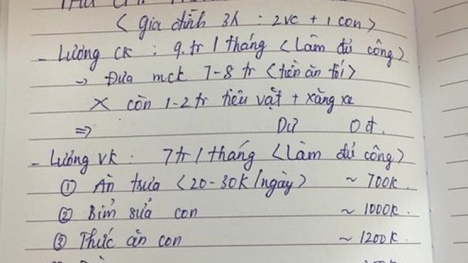 THU CHI
( Gia đình 3k : 2vc + 1 con )
- Lương CK : 9.tr / tháng ( Làm đủ công )
→ Đưa mck 7-8 tr ( tiền ăn tối )
X còn 1-2 tr tiêu vặt + xăng xe
⇒ Dư 0đ.
- Lương VK : 7tr / tháng ( làm đủ công )
① Ăn trưa ( 20-30k/ngày ) ~ 700k.
② Bỉm sữa con ~ 1000k.
③ Thức ăn con ~ 1200k.